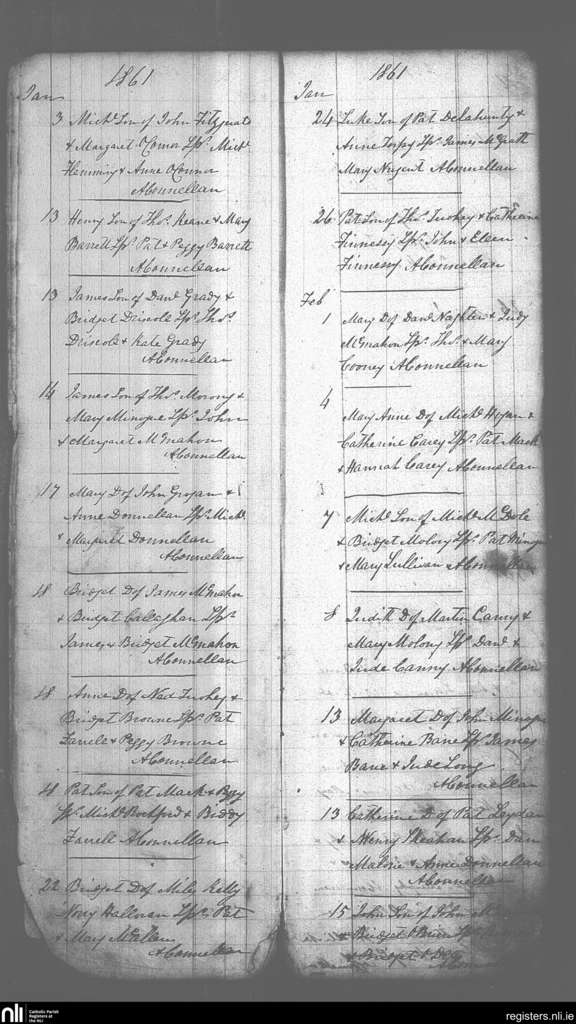 1861
Jan
3 Michl Son of John Fitzgerald
& Margaret OConnor Sps Michl
Flemming & Anne OConnor
AConnellan
13 Henry Son of Ths Keane & Mary
Barrett Sps Pat & Peggy Barrett
AConnellan
13 James Son of Danl Grady &
Bridget Driscole Sps Ths
Driscole & Kate Grady
AConnellan
14 James Son of Ths Morony &
Mary Minogue Sps John
& Margaret McMahon
AConnellan
17 Mary D of John Grogan &
Anne Donnellan Sps Michl
& Margaret Donnellan
AConnellan
18 Bridget D of James McMahon
& Bridget Callaghan Sps
James & Bridget McMahon
AConnellan
18 Anne D of Ned Tuohey &
Bridget Browne Sps Pat
Farrell & Peggy Browne
AConnellan
Pat Son of Pat Mack &
Sps Michl & Biddy
Farrell AConnellan
22 Bridget D of Mile Kelly
Hallnan Sps Pat
& Mary
AConnellan
1861
Jan
24 Luke Son of Pat Delahunty &
Anne Torpy Sps James McGrath
Mary Nugent AConnellan
26 Pat Son of Ths Tuohey & Catherine
Finnessy Sps John & Ellen
Finnessy AConnellan
Feb
1 Mary D of Danl Naghten & Judy
McMahon Sps Ths & Mary
Cooney AConnellan
4
Mary Anne D of Michl Hogan &
Catherine Carey Sps Pat Mack
& Hannah Carey AConnellan
7 Michl Son of Michl McDole
& Bridget Molony Sps Pat Minogue
& Mary Sullivan AConnellan
8 Judith D of Martin Canny &
Mary Molony Sps Danl &
Jude Canny AConnellan
13 Margaret D of John Minogue
& Catherine Bane Sps James
Bane & Jude Long
AConnellan
13 Catherine D of Pat Leydan
& Sps Dan
Malone & Anne Donnellan
AConnellan
15 John Son of John
& Bridget OBrien Sps
& Bridget
AConnellan
nli Catholic Parish
Registers at
the NLI
registers.nli.ie